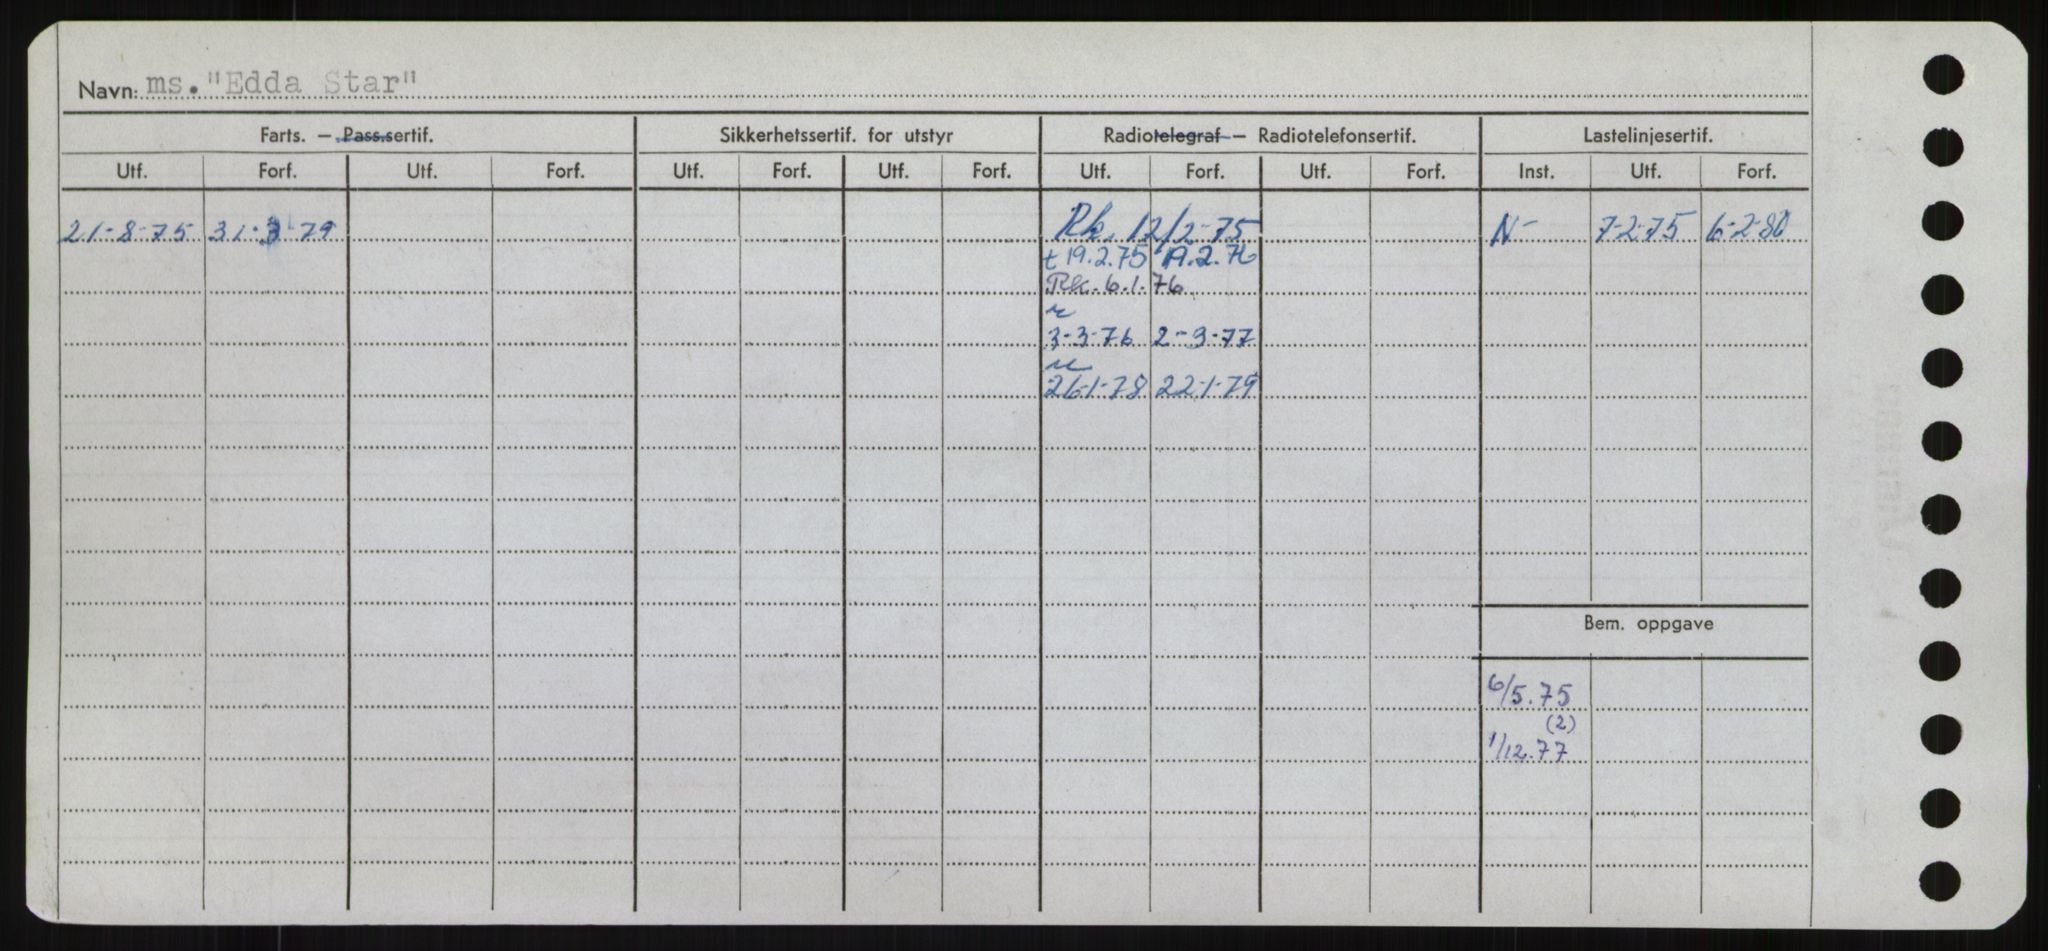 Navn: ms. "Edda Star"
Farts. — Pass.sertif. Sikkerhetssertif. for utstyr Radiotelegraf — Radiotelefonsertif. Lastelinjesertif.
Utf. Forf. Utf. Forf. Utf. Forf. Utf. Forf. Utf. Forf. Utf. Forf. Inst. Utf. Forf.
21-8-75 31-3-79 Rk. 12/2-75 N- 7-2-75 6-2-80
t 19.2.75 19.2.76
Rk. 6.1.76
3-3-76 2-3-77
26-1-78 22-1-79
Bem. oppgave
6/5.75
(2)
1/12.77